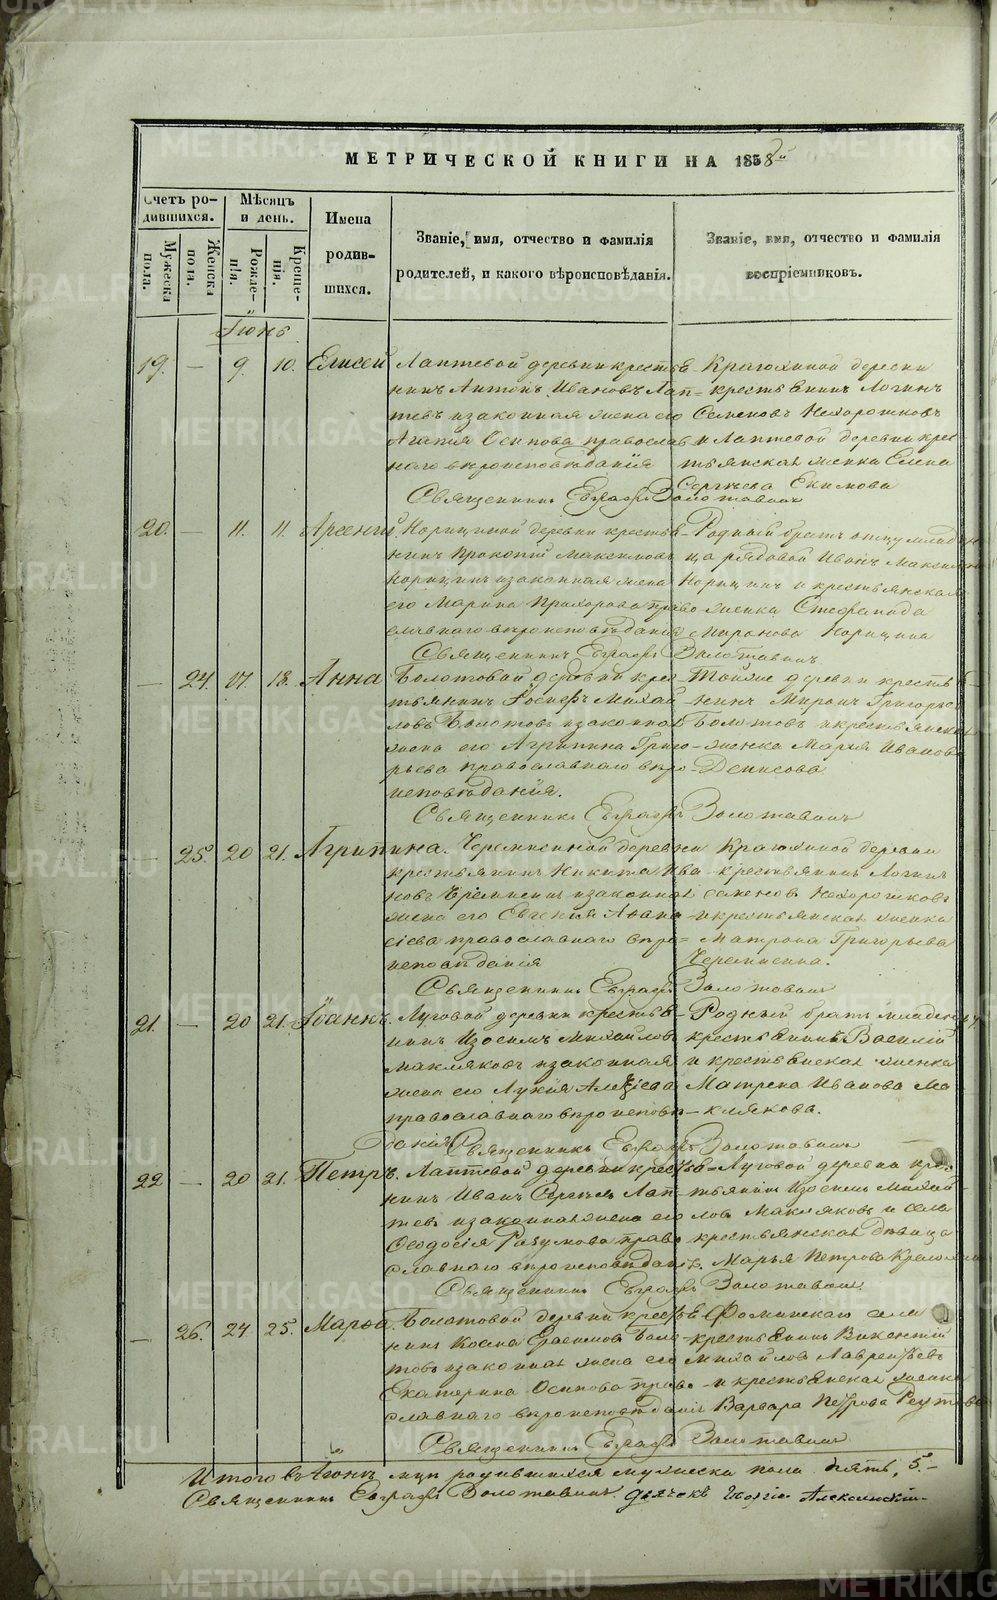 МЕТРИЧЕСКОЙ КНИГИ НА 1858й
Счетъ ро-
дившихся.
Мужеска
пола.
Женска
пола.
Мѣсяцъ
и день.
Рожде-
нія.
Креще-
нія.
Имена
родив-
шихся.
Званіе, имя, отчество и фамилія
родителей, и какого вѣроисповѣданія.
Званіе, имя, отчество и фамилія
воспріемниковъ.
Іюнь
19. — 9. 10. Елисей
Лаптевой деревни крестья-
нинъ Антонъ Ивановъ Лап-
тевъ и законная жена его
Агапія Осипова православ-
наго вѣроисповѣданія
Крагюхиной деревни
крестьянинъ Логинъ
Семеновъ Нехорошковъ
и Лаптевой деревни крес
тьянская женка Елена
Сергѣева Екимова
Священникъ Евграфъ Золотавинъ
20. — 11. 11. Арсеній
Корицыной деревни крестья-
нинъ Прокопій Максимовъ
Корицинъ и законная жена
его Марина Прохорова право
славнаго вѣроисповѣданія
Родный братъ отцу младен
ца рядовой Иванъ Максимовъ
Корицинъ и крестьянская
женка Стефанида
Миронова Корицина
Священникъ Евграфъ Золотавинъ
— 24. 17. 18. Анна
Болотовой деревни крес-
тьянинъ Іосифъ Михай-
ловъ Болотовъ и законная
жена его Агрипина Григо-
рьева православнаго вѣро-
исповѣданія.
Тойже деревни крестья-
нинъ Миронъ Григорьев
Болотовъ и крестьянская
женка Марья Иванова
Денисова
Священникъ Евграфъ Золотавинъ
— 25. 20 21. Агрипина.
Черемисиной деревни
крестьянинъ Никита Ива-
новъ Черемисинъ и законная
жена его Евгенія Афана-
сіева православнаго вѣро-
исповѣданія
Крагюхиной деревни
крестьянинъ Логинъ
Семеновъ Нехорошковъ
и крестьянская женка
Матрона Григорьева
Черемисина.
Священникъ Евграфъ Золотавинъ
21. — 20 21. Іоаннъ.
Луговой деревни крестья-
нинъ Изосимъ Михайловъ
Макляковъ и законная
жена его Лукія Алексіева
православнаго вѣроисповѣ-
данія
Родный братъ младенцу
крестьянинъ Василій
и крестьянская женка
Матрена Иванова Ма
клякова.
Священникъ Евграфъ Золотавинъ
22 — 20 21. Петръ.
Лаптевой деревни крестья-
нинъ Иванъ Сергѣевъ Лап-
тевъ и законная жена его
Ѳеодосія Разумова право
славнаго вѣроисповѣданія.
Луговой деревни крес-
тьянинъ Изосимъ Михай-
ловъ Макляковъ и села
крестьянская дѣвица
Марья Петрова
Священникъ Евграфъ Золотавинъ.
— 26. 24 25. Марѳа
Болотовой деревни крестья-
нинъ Косма Герасимовъ Боло-
товъ и законная жена его
Екатерина Осипова право-
славнаго вѣроисповѣданія
Фоминскаго села
крестьянинъ Викентій
Михайловъ Лаврентьевъ
и крестьянская женка
Варвара Петрова
Священникъ Евграфъ Золотавинъ
Итого въ Іюнѣ м-цѣ родившихся мужеска пола пять, 5.—
Священникъ Евграфъ Золотавинъ. Дьячекъ Георгій Алексинскій.
METRIKI.GASO-URAL.RU